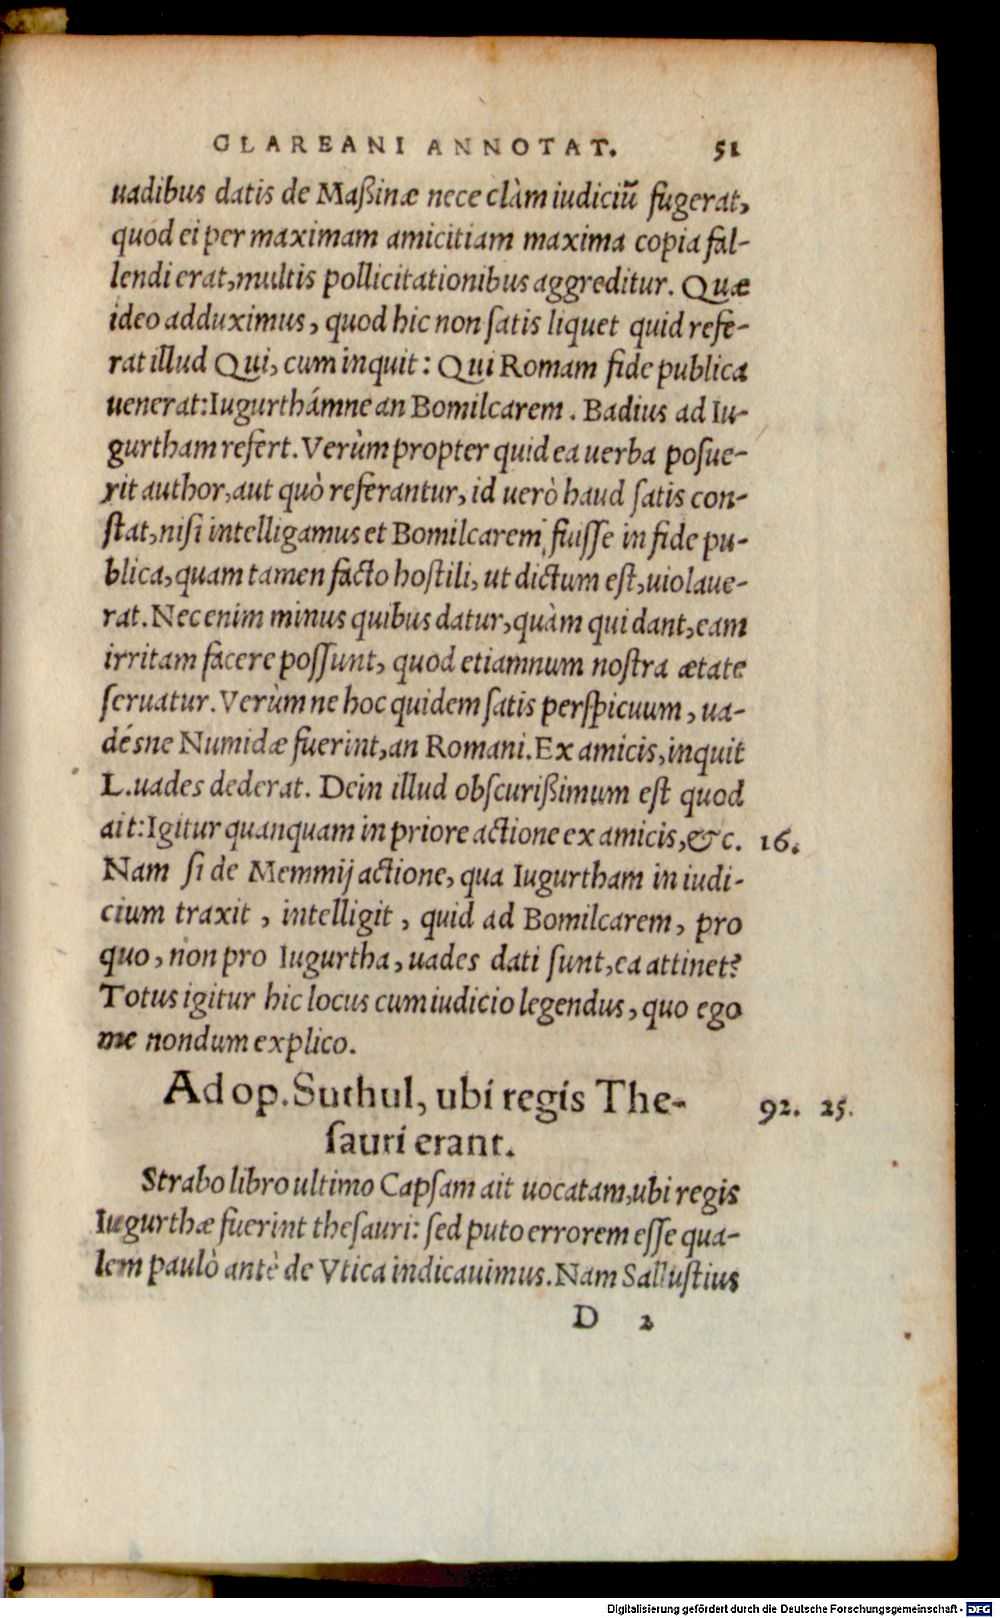 GLAREANI ANNOTAT. 51
uadibus datis de Maßinæ nece clàm iudiciū fugerat,
quod ei per maximam amicitiam maxima copia fal-
lendi erat, multis pollicitationibus aggreditur. Quæ
ideo adduximus, quod hic non ſatis liquet quid refe-
rat illud Qui, cum inquit: Qui Romam fide publica
uenerat: Iugurthámne an Bomilcarem. Badius ad Iu-
gurtham refert. Verùm propter quid ea uerba poſue-
rit author, aut quò referantur, id uerò haud ſatis con-
ſtat, niſi intelligamus et Bomilcarem fuiſſe in fide pu-
blica, quam tamen facto hoſtili, ut dictum eſt, uiolaue-
rat. Nec enim minus quibus datur, quàm qui dant, eam
irritam facere poſſunt, quod etiamnum noſtra ætate
ſeruatur. Verùm ne hoc quidem ſatis perſpicuum, ua-
désne Numidæ fuerint, an Romani. Ex amicis, inquit
L. uades dederat. Dein illud obſcurißimum eſt quod
ait: Igitur quanquam in priore actione ex amicis, &c. 16.
Nam ſi de Memmij actione, qua Iugurtham in iudi-
cium traxit, intelligit, quid ad Bomilcarem, pro
quo, non pro Iugurtha, uades dati ſunt, ea attinet?
Totus igitur hic locus cum iudicio legendus, quo ego
me nondum explico.
Ad op. Suthul, ubi regis The- 92. 25.
ſauri erant.
Strabo libro ultimo Capſam ait uocatam, ubi regis
Iugurthæ fuerint theſauri: ſed puto errorem eſſe qua-
lem paulò antè de Vtica indicauimus. Nam Salluſtius
D 2
Digitalisierung gefördert durch die Deutsche Forschungsgemeinschaft - DFG